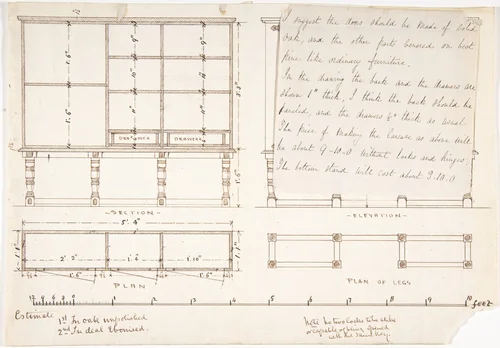 I suggest the doors should be made of solid
oak, and the other parts veneered on best
pine like ordinary furniture.
In the drawing the back and the drawers are
shown 1" thick. I think the back should be
panelled, and the drawers ⅜" thick as usual.
The price of making the carcase as above will
be about 9-10.0 without locks and hinges.
The bottom stand will cost about 3.10.0
1'.6"
1'.6"
9"
9"
11"
11"
DRAWER
DRAWERS
3'.3"
1'.6"
-SECTION-
-ELEVATION-
5'. 4"
1'.2"
2'. 2"
1'.6"
1'.10"
1'.1"
1'.6"
1'.6"
PLAN
PLAN OF LEGS
12 9 6 3 0 1 2 3 4 5 6 7 8 9 10 feet
Estimate 1st In oak unpolished
2nd In deal Ebonised.
Note no two locks to be alike
or capable of being opened
with the same key.